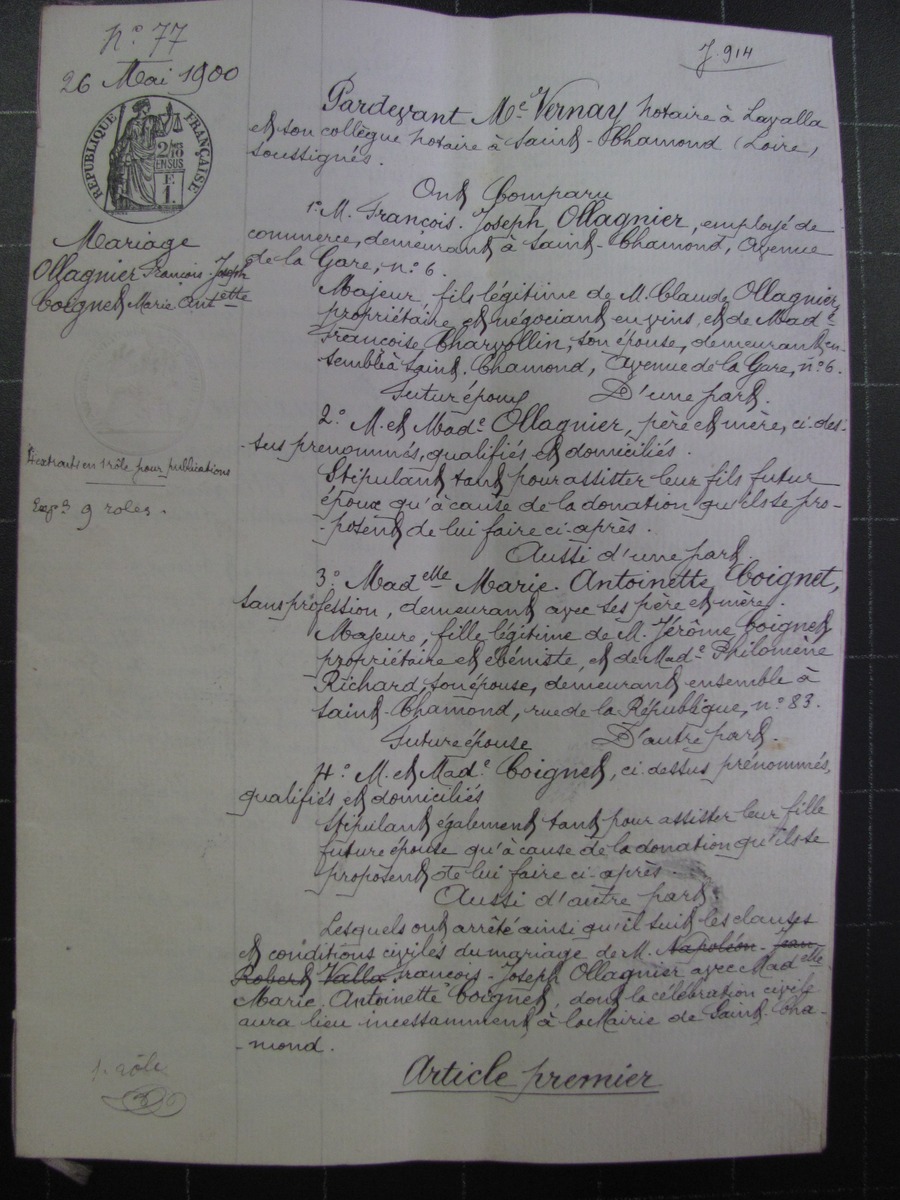 N° 77
26 Mai 1900
RÉPUBLIQUE FRANÇAISE
2/10
EN SUS
F
1.
Mariage
Ollagnier François-Joseph
Coignet Marie Antette
4 extraits en 1 rôle pour publications
Expon 9 roles.
1. rôle
J. 914
Pardevant Me Vernay notaire à Lavalla
et son collègue notaire à Saint-Chamond (Loire)
soussignés.
Ont Comparu
1° M. François-Joseph Ollagnier, employé de
commerce, demeurant à Saint-Chamond, Avenue
de la Gare, n° 6.
Majeur, fils légitime de M. Claude Ollagnier,
propriétaire et négociant en vins, et de Made
Françoise Charvollin, son épouse, demeurant en-
semble à Saint-Chamond, Avenue de la Gare, n° 6.
Futur époux D'une part.
2° M. et Made Ollagnier, père et mère, ci-des-
sus prénommés, qualifiés et domiciliés.
Stipulant tant pour assister leur fils futur
époux qu'à cause de la donation qu'ils se pro-
-posent de lui faire ci-après.
Aussi d'une part.
3° Madelle Marie-Antoinette Coignet,
sans profession, demeurant avec ses père et mère.
Majeure, fille légitime de M. Jérôme Coignet
propriétaire et ébéniste, et de Made Philomène
Richard, son épouse, demeurant ensemble à
Saint-Chamond, rue de la République, n° 83.
Future épouse D'autre part.
4° M. et Made Coignet, ci-dessus prénommés,
qualifiés et domiciliés
Stipulant également tant pour assister leur fille
future épouse qu'à cause de la donation qu'ils se
proposent de lui faire ci-après.
Aussi d'autre part.
Lesquels ont arrêté ainsi qu'il suit les clauses
et conditions civiles du mariage de M. Napoléon-Jean
Robert Valla François-Joseph Ollagnier avec Madelle
Marie-Antoinette Coignet, dont la célébration civile
aura lieu incessamment à la Mairie de Saint-Cha-
-mond.
Article premier